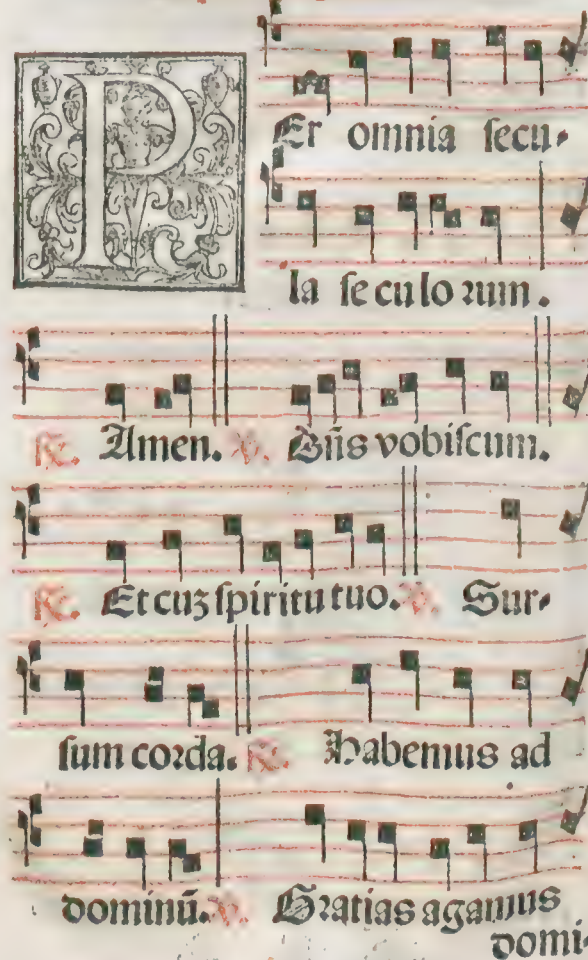 PEr omnia ſecu-
la ſe cu lo ꝛum.
℟. Amen. ℣. Dñs vobiſcum.
℟. Et cuꝫ ſpiritu tuo. ℣. Sur-
ſum coꝛda. ℟. Habemus ad
dominū. ℣. Gꝛatias agamus
domi-